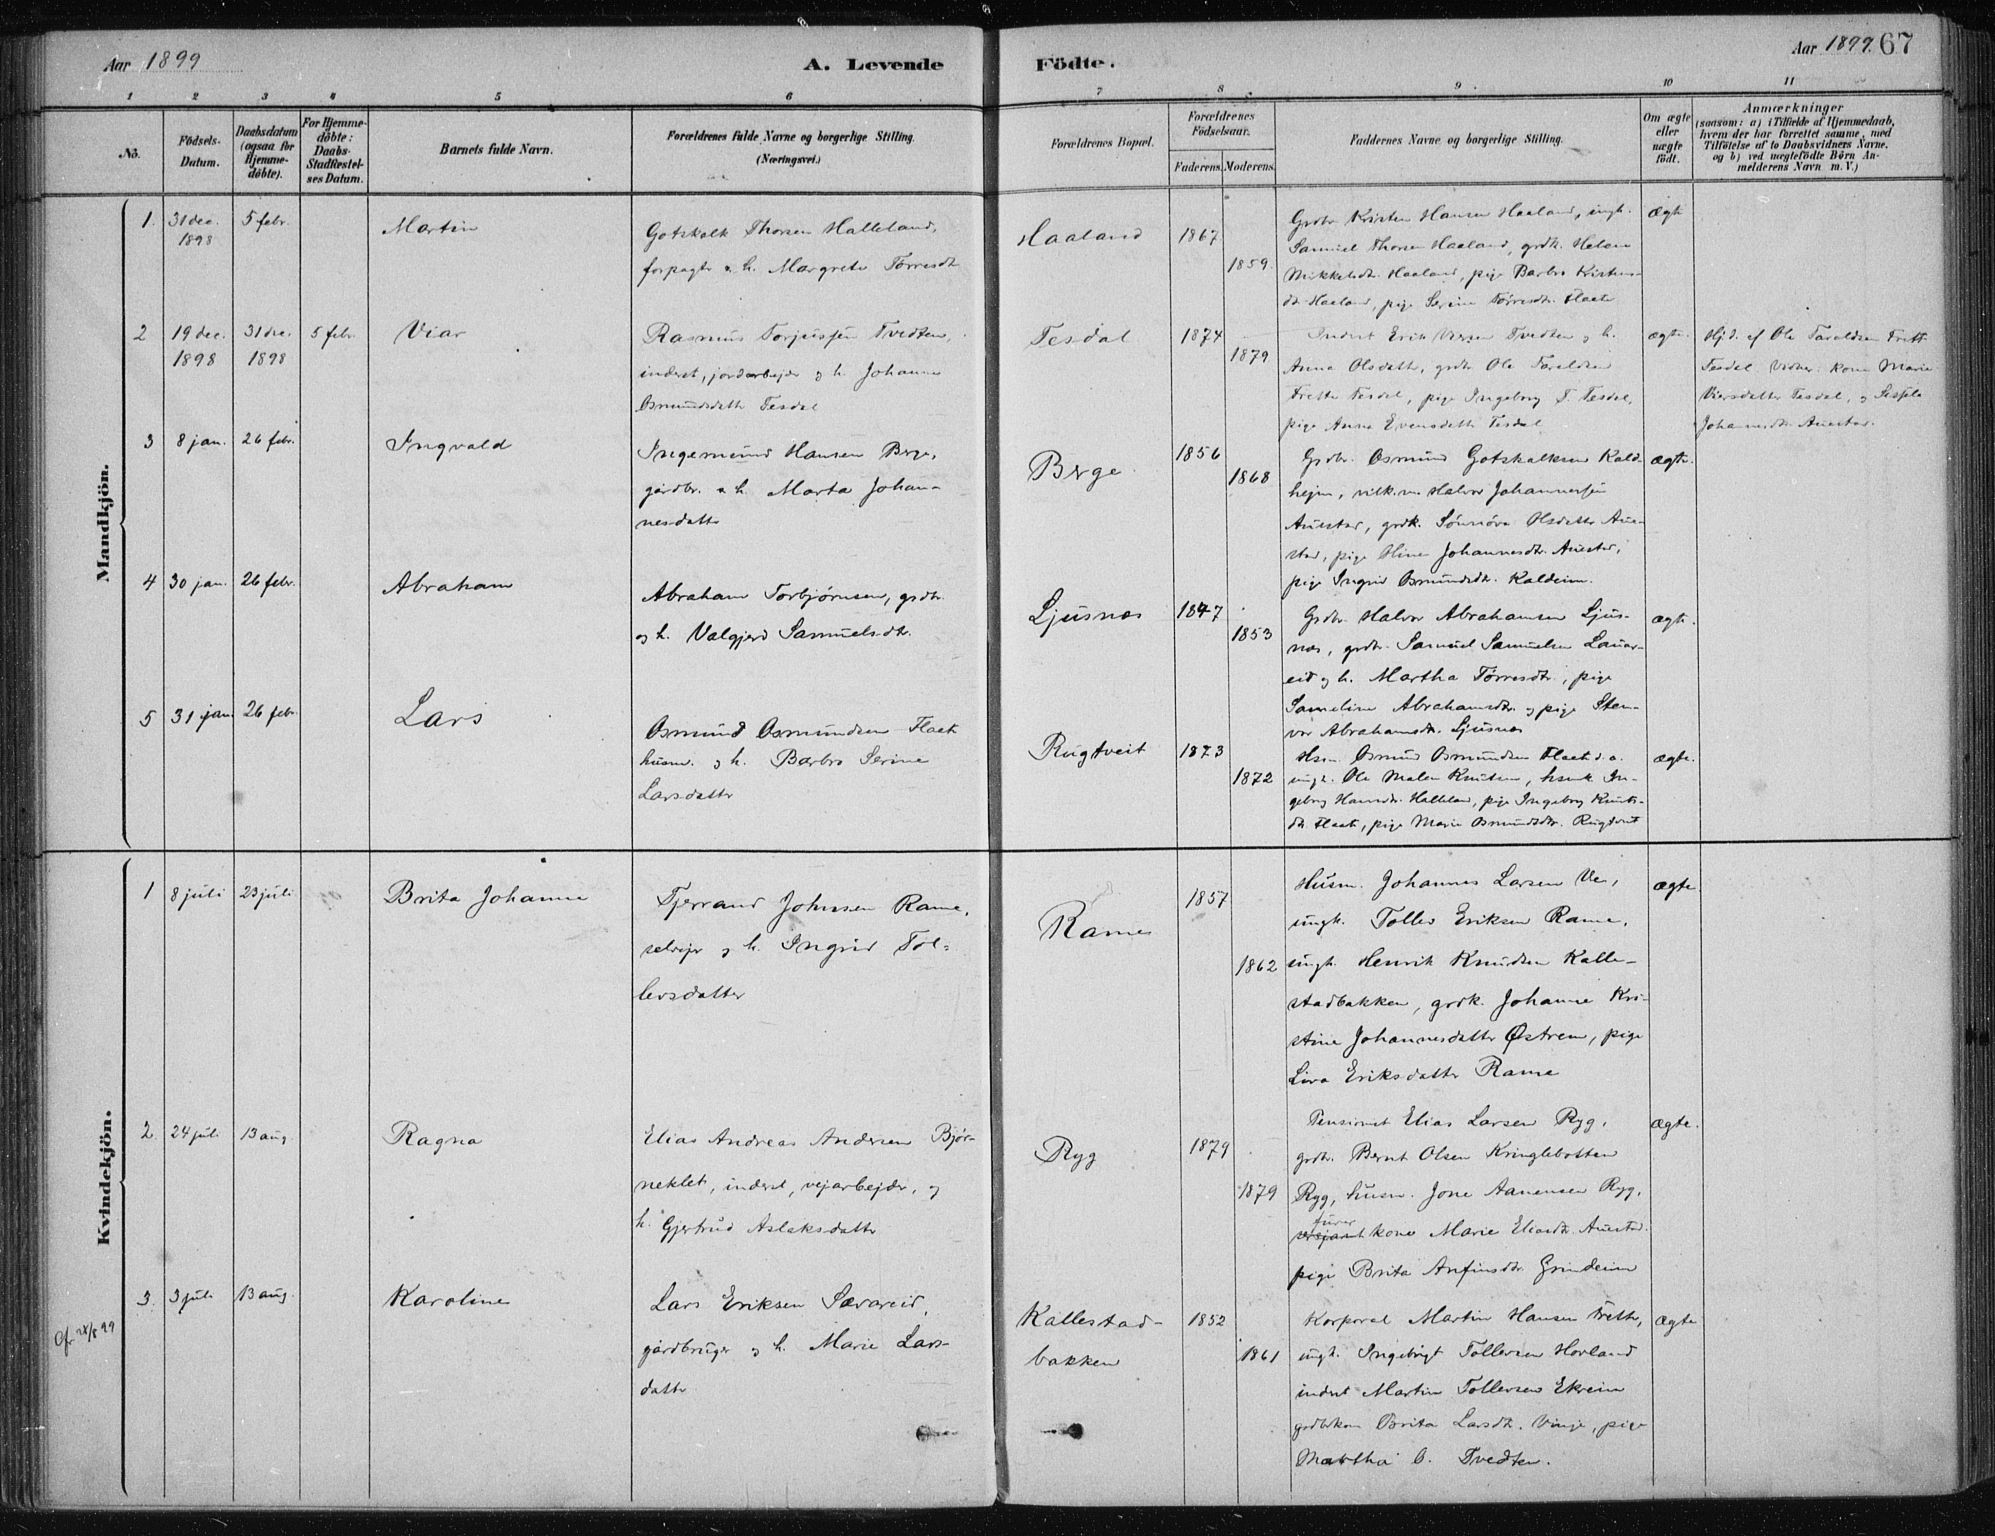 Aar 1899
A. Levende
Födte.
Aar 1899. 67
1 2 3 4 5 6 7 8 9 10 11
No.
Födsels-
Datum.
Daabsdatum
(ogsaa for
Hjemme-
döbte).
For Hjemme-
döbte:
Daabs-
Stadfæstel-
ses Datum.
Barnets fulde Navn.
Forældrenes fulde Navne og borgerlige Stilling.
(Næringsvei.)
Forældrenes Bopæl.
Forældrenes
Födselsaar.
Faderens. Moderens.
Faddernes Navne og borgerlige Stilling.
Om ægte
eller
uægte
født.
Anmærkninger
(saasom: a) i Tilfælde af Hjemmedaab,
hvem der har forrettet samme, med
Tilföielse af to Daabsvidners Navne,
og b) ved uægtefödte Börn An-
melderens Navn m. V.)
Mandkjön.
1. 31 dec. 1898
5 febr.
Martin
Gotskalk Thorsen Halleland,
forpagter o. h. Margrete Tørresdt
Haaland
1867
1859.
Grdbr Kristen Hansen Haaland, ungk.
Samuel Thorsen Haaland, grdk. Helene
Mikkelsdt. Haaland, pige Barbro Kristens-
dt. Haaland, pige Serine Tørresdt. Flaete
ægte
2 19 dec. 1898
31 dec. 1898
5 febr.
Viar
Rasmus Torjussen Tvedten,
inderst, jordarbejder og h. Johanne
Osmundsdatter Tesdal
Tesdal
1874
1879
Inderst Erik Viersen Tvedten og h.
Anna Olsdatter, grdbr Ole Taraldsen
Frette Tesdal, pige Ingeborg T. Tesdal,
pige Anna Evensdatter Tesdal
ægte.
Hjd. af Ole Taraldsen Frett
Tesdal Vidner: kone Marie
Viersdatter Tesdal, og
Johannesdt. Auestad.
3 8 jan. 26 febr.
Ingvald
Ingemund Hansen Berge,
gårdbr. o. h. Marta Johan-
nesdatter
Berge
1856
1868
Grdbr. Osmund Gotskalksen Kald-
hejm, Halvor Johannessen
Auestad, grdk. Sønnøva Olsdatter Aue-
stad, pige Stine Johannesdtr. Auestad,
pige Ingrid Osmundsdt. Kaldeim.
ægte.
4 30 jan. 26 febr.
Abraham
Abraham Torbjørnsen, grdbr.
og h. Valgjerd Samuelsdtr.
Ljusnæs
1847
1853
Grdbr. Halvor Abrahamsen Ljus-
næs, grdbr. Samuel Samuelsen Lauar-
eid og h. Martha Tørresdtr., pige
Sameline Abrahamsdtr. og pige Sten-
vor Abrahamsdt. Ljusnæs
ægte.
5 31 jan. 26 febr.
Lars
Osmund Osmundsen Flaet
husm. og h. Barbro Serine
Larsdatter
Rugtveit
1873
1872
Hsm. Osmund Osmundsen Flaet
ungk. Ole Malen Knutsen, husmk. In-
geborg Hansdt. Halleland, pige Ingeborg Knuts-
dt. Flaete, pige Marie Osmundsdtr. Rugtveit
ægte.
Kvindekjön.
1 8 juli 23 juli
Brita Johanne
Tjerrand Johnsen Rame,
selvejer og h. Ingrid Tol-
levsdatter
Rame
1857
1862
Husm. Johannes Larsen Ve,
ungk. Tollev Eriksen Rame,
ungk. Henrik Knudsen Kalle-
stadbakken, grdk. Johanne Kri-
stine Johannesdatter Østrem, pige
Liva Eriksdatter Rame
ægte
2. 24 juli 13 aug.
Ragna
Elias Andreas Andersen Bjør-
neklet, inderst, vejarbejder, og
h. Gjertrud Aslaksdatter
Ryg
1879
1879
Pensionist Elias Larsen Ryg,
grdbr. Bernt Olsen Kringlebotten
Ryg, husm. Jone Aanensen Ryg,
furer
kone Marie Eliasdt. Auestad.
pige Brita Anfinsdtr. Grindeim
ægte.
3. 3 juli 13 aug.
Cfr 28/8 99
Karoline
Lars Eriksen Sævareid,
gårdbruger og h. Marie Lars-
datter
Kallestad-
bakken
1852
1861
Korporal Martin Hansen Frette,
ungk. Ingebrigt Tollevsen Hovland
inderst Martin Tollevsen Ekreim
grdbrkone Brita Larsdt. Vinje, pige
Martha O. Tvedten.
ægte